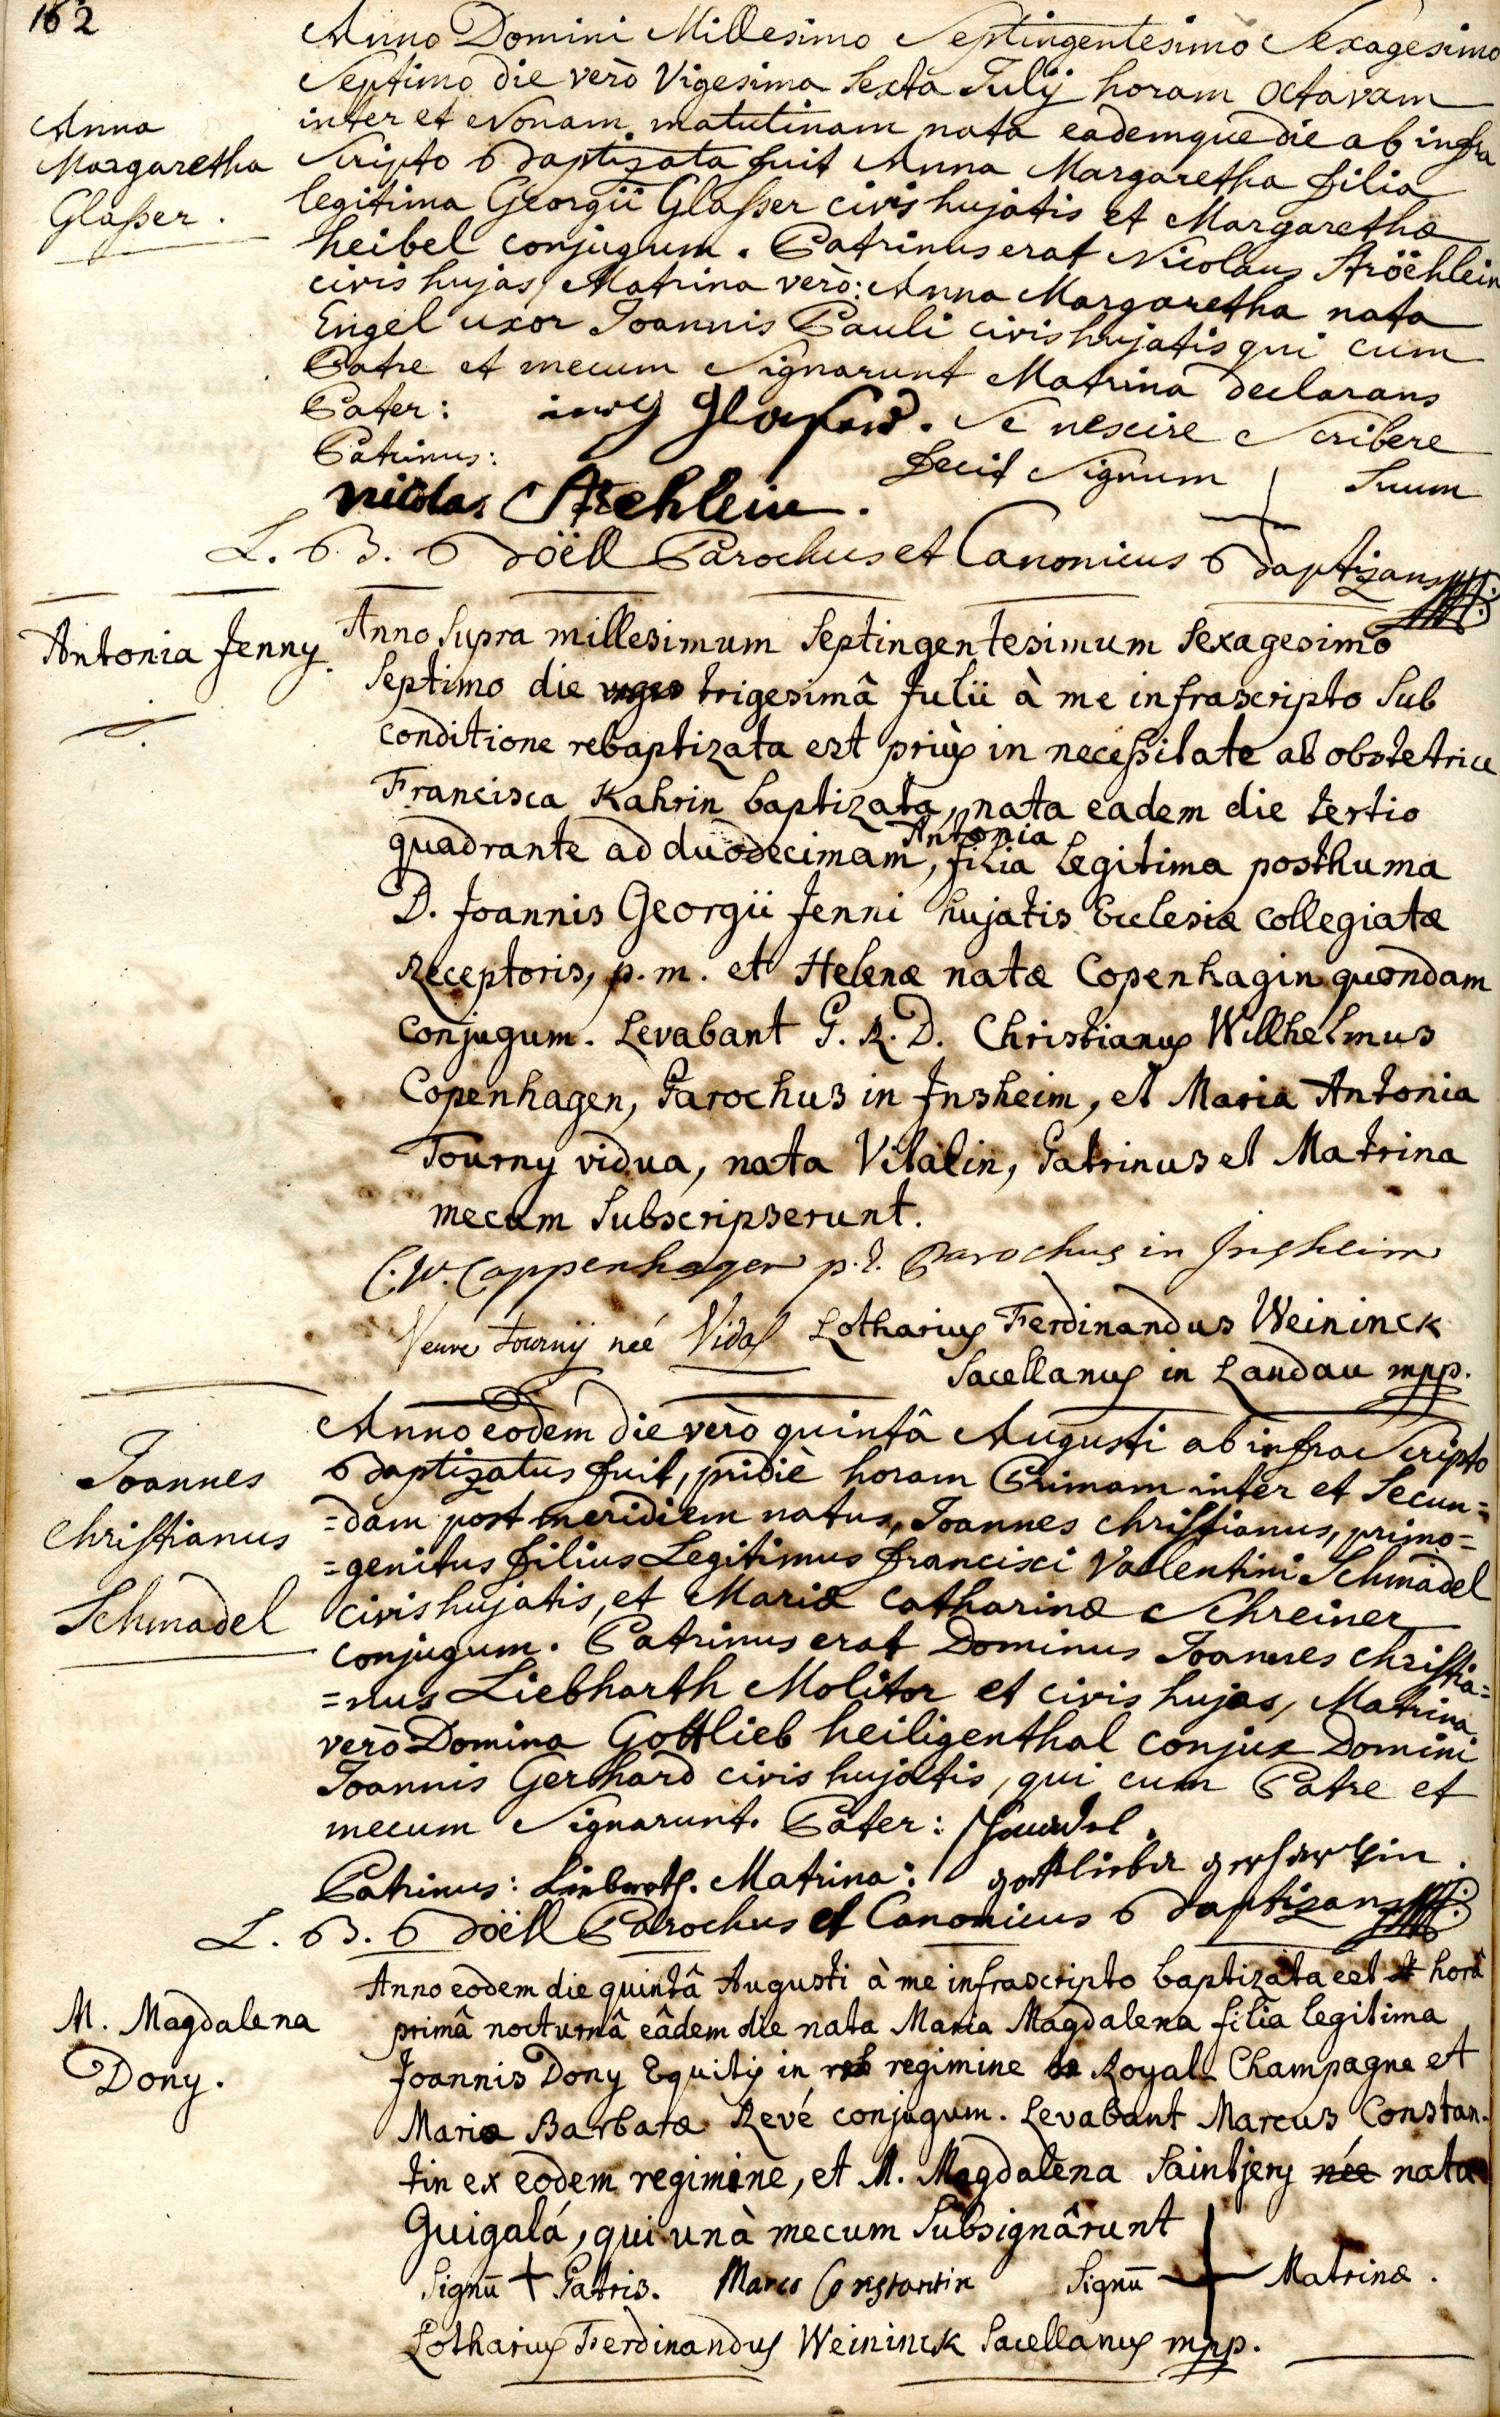 162
Anno Domini Millesimo Septingentesimo Sexagesimo
Septimo die verò Vigesima Sexta Julÿ horam octavam
inter et Nonam matutinam nata eademque die ab infra
Scripto Baptizata fuit Anna Margaretha filia
legitima Georgii Glaßer civis hujatis et Margarethæ
heibel conjugum. Patrinus erat Nicolaus Ströehlein
civis hujas, Matrina verò: Anna Margaretha nata
Engel uxor Joannis Pauli civis hujatis qui cum
Patre et mecum Signarunt Matrina declarans
Anna
Margaretha
Glaßer.
Pater: Se nescire Scribere
Patrinus: fecit Signum Suum
nicolas
L. B. Boëll Parochus et Canonicus Baptizans
Antonia Jenny.
Anno Supra millesimum Septingentesimum Sexagesimo
Septimo die trigesimâ Julii à me infrascripto Sub
conditione rebaptizata est priùs in necessitate ab obstetrice
Francisca Kahrin baptizata, nata eadem die tertio
quadrante ad duodecimam, Antonia filia legitima posthuma
D. Joannis Georgii Jenni hujatis Ecclesiæ collegiatæ
Receptoris, p.m. et Helenæ natæ Copenhagin quondam
conjugum. Levabant P. R. D. Christianus Willhelmus
Copenhagen, Parochus in Insheim, et Maria Antonia
Tourny vidua, nata Vitalin, Patrinus et Matrina
mecum Subscripserunt.
C. W. Coppenhagen p. t. Parochus in Insheim
Veuve tournÿ neé Vidal Lotharius Ferdinandus Weininck
Sacellanus in Landau mpp.
Joannes
Christianus
Schmadel
Anno eodem die verò quintâ Augusti ab infra Scripto
Baptizatus fuit, pridiè horam Primam inter et Secun=
=dam post meridiem natus, Joannes Christianus, primo=
=genitus filius Legitimus francisci Vallentini Schmadel
civis hujatis, et Mariæ Catharinæ Schreiner
conjugum. Patrinus erat Dominus Joannes Christia=
=nus Liebharth Molitor et civis hujas, Matrina
verò Domina Gottlieb heiligenthal conjux Domini
Joannis Gerhard civis hujatis, qui cum Patre et
mecum Signarunt. Pater: Schmadel.
Patrinus: Matrina: gottlieba gerhardtin.
L. B. Boëll Parochus et Canonicus Baptizans
M. Magdalena
Dony.
Anno eodem die quintâ Augusti à me infrascripto baptizata est horâ
primâ nocturnâ eâdem die nata Maria Magdalena filia legitima
Joannis Dony Equitis in regimine Royal Champagne et
Mariæ Barbaræ Revé conjugum. Levabant Marcus Constan-
tin ex eodem regimine, et M. Magdalena Saintjery née nata
Guigalá, qui unà mecum Subsignârunt
Signū + Patris. Marcs Constantin Signū + Matrinæ.
Lotharius Ferdinandus Weininck Sacellanus mpp.